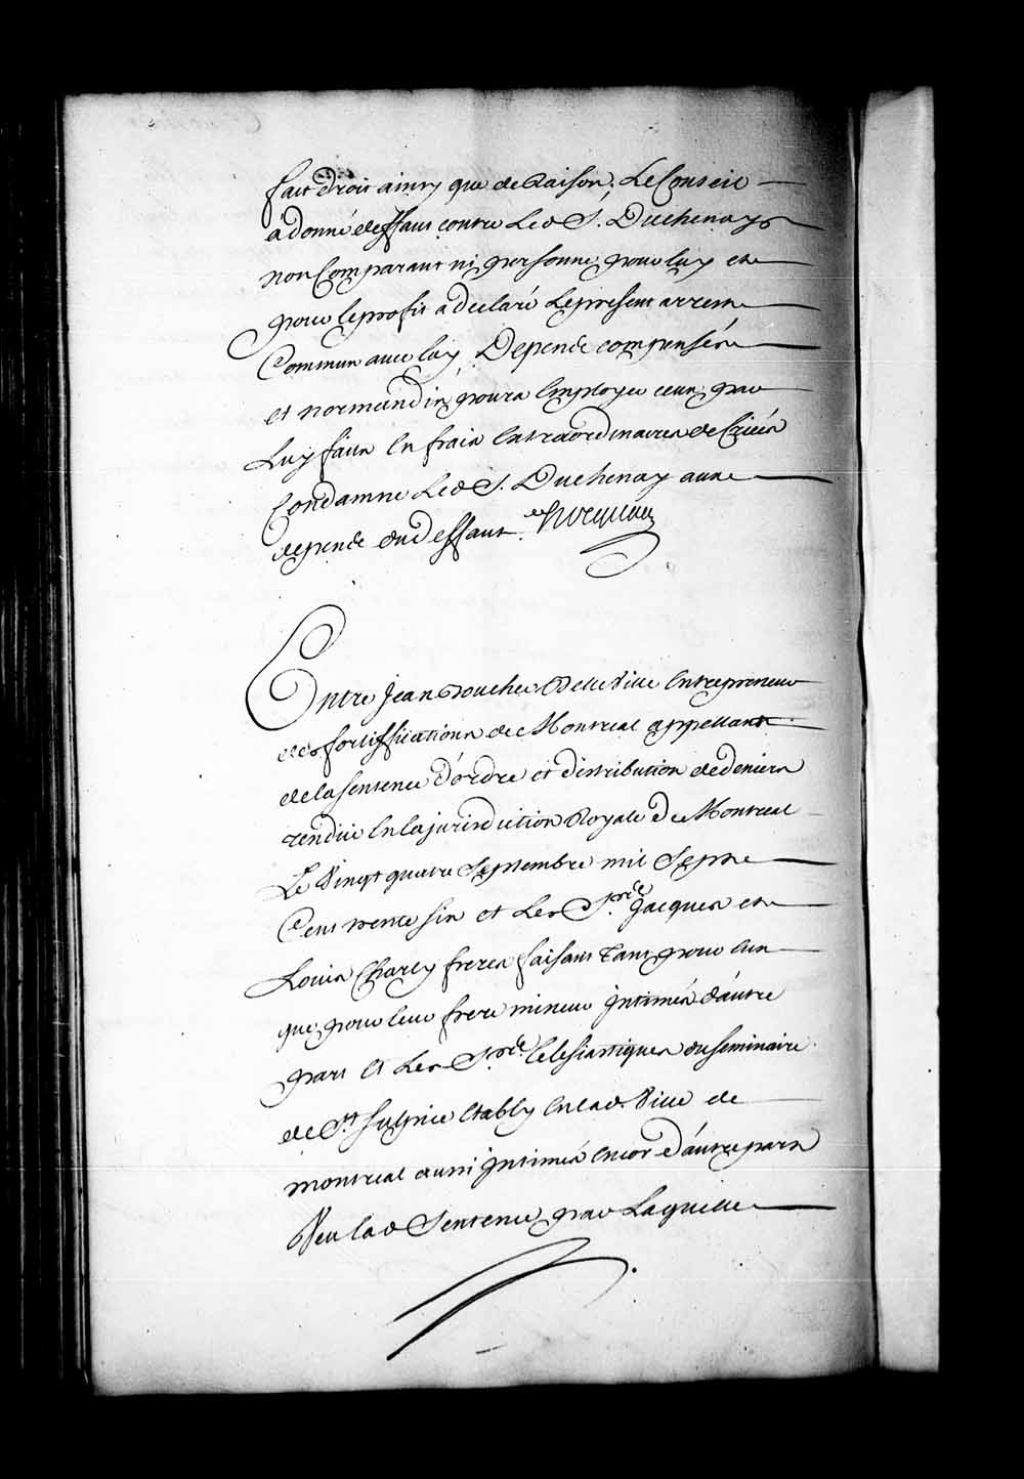 fait droit ainsy que de Raison. Le Conseil
a donné deffaut contre Led S. Duchenay
non Comparant ni personne pour luy et
pour le profit a declaré Le present arrest
Commun avec luy, Depens compensés
et normandin poura Employer ceux par
Luy faits En frais Extraordinaires de Criées
Condamne Led S. Duchenay aux
depens dud deffaut. Hocquart
Entre Jean Boucher Belleville Entrepreneur
des fortiffications de Montreal appellant
de la sentence d'ordre et distribution de deniers
rendüe En la jurisdiction Royale De Montreal
Le Vingt quatre Septembre mil Sept
Cent trente six et Les Srs Jacques et
Louis Charly freres faisans Tant pour Eux
que pour leur frere mineur Intimés d'autre
part Et Les Srs Eclesiastiques du seminaire
de St Sulpice Etably En lad. Ville de
montreal aussi Intimés Encor d'autre part
Veu lad Sentence par Laquelle